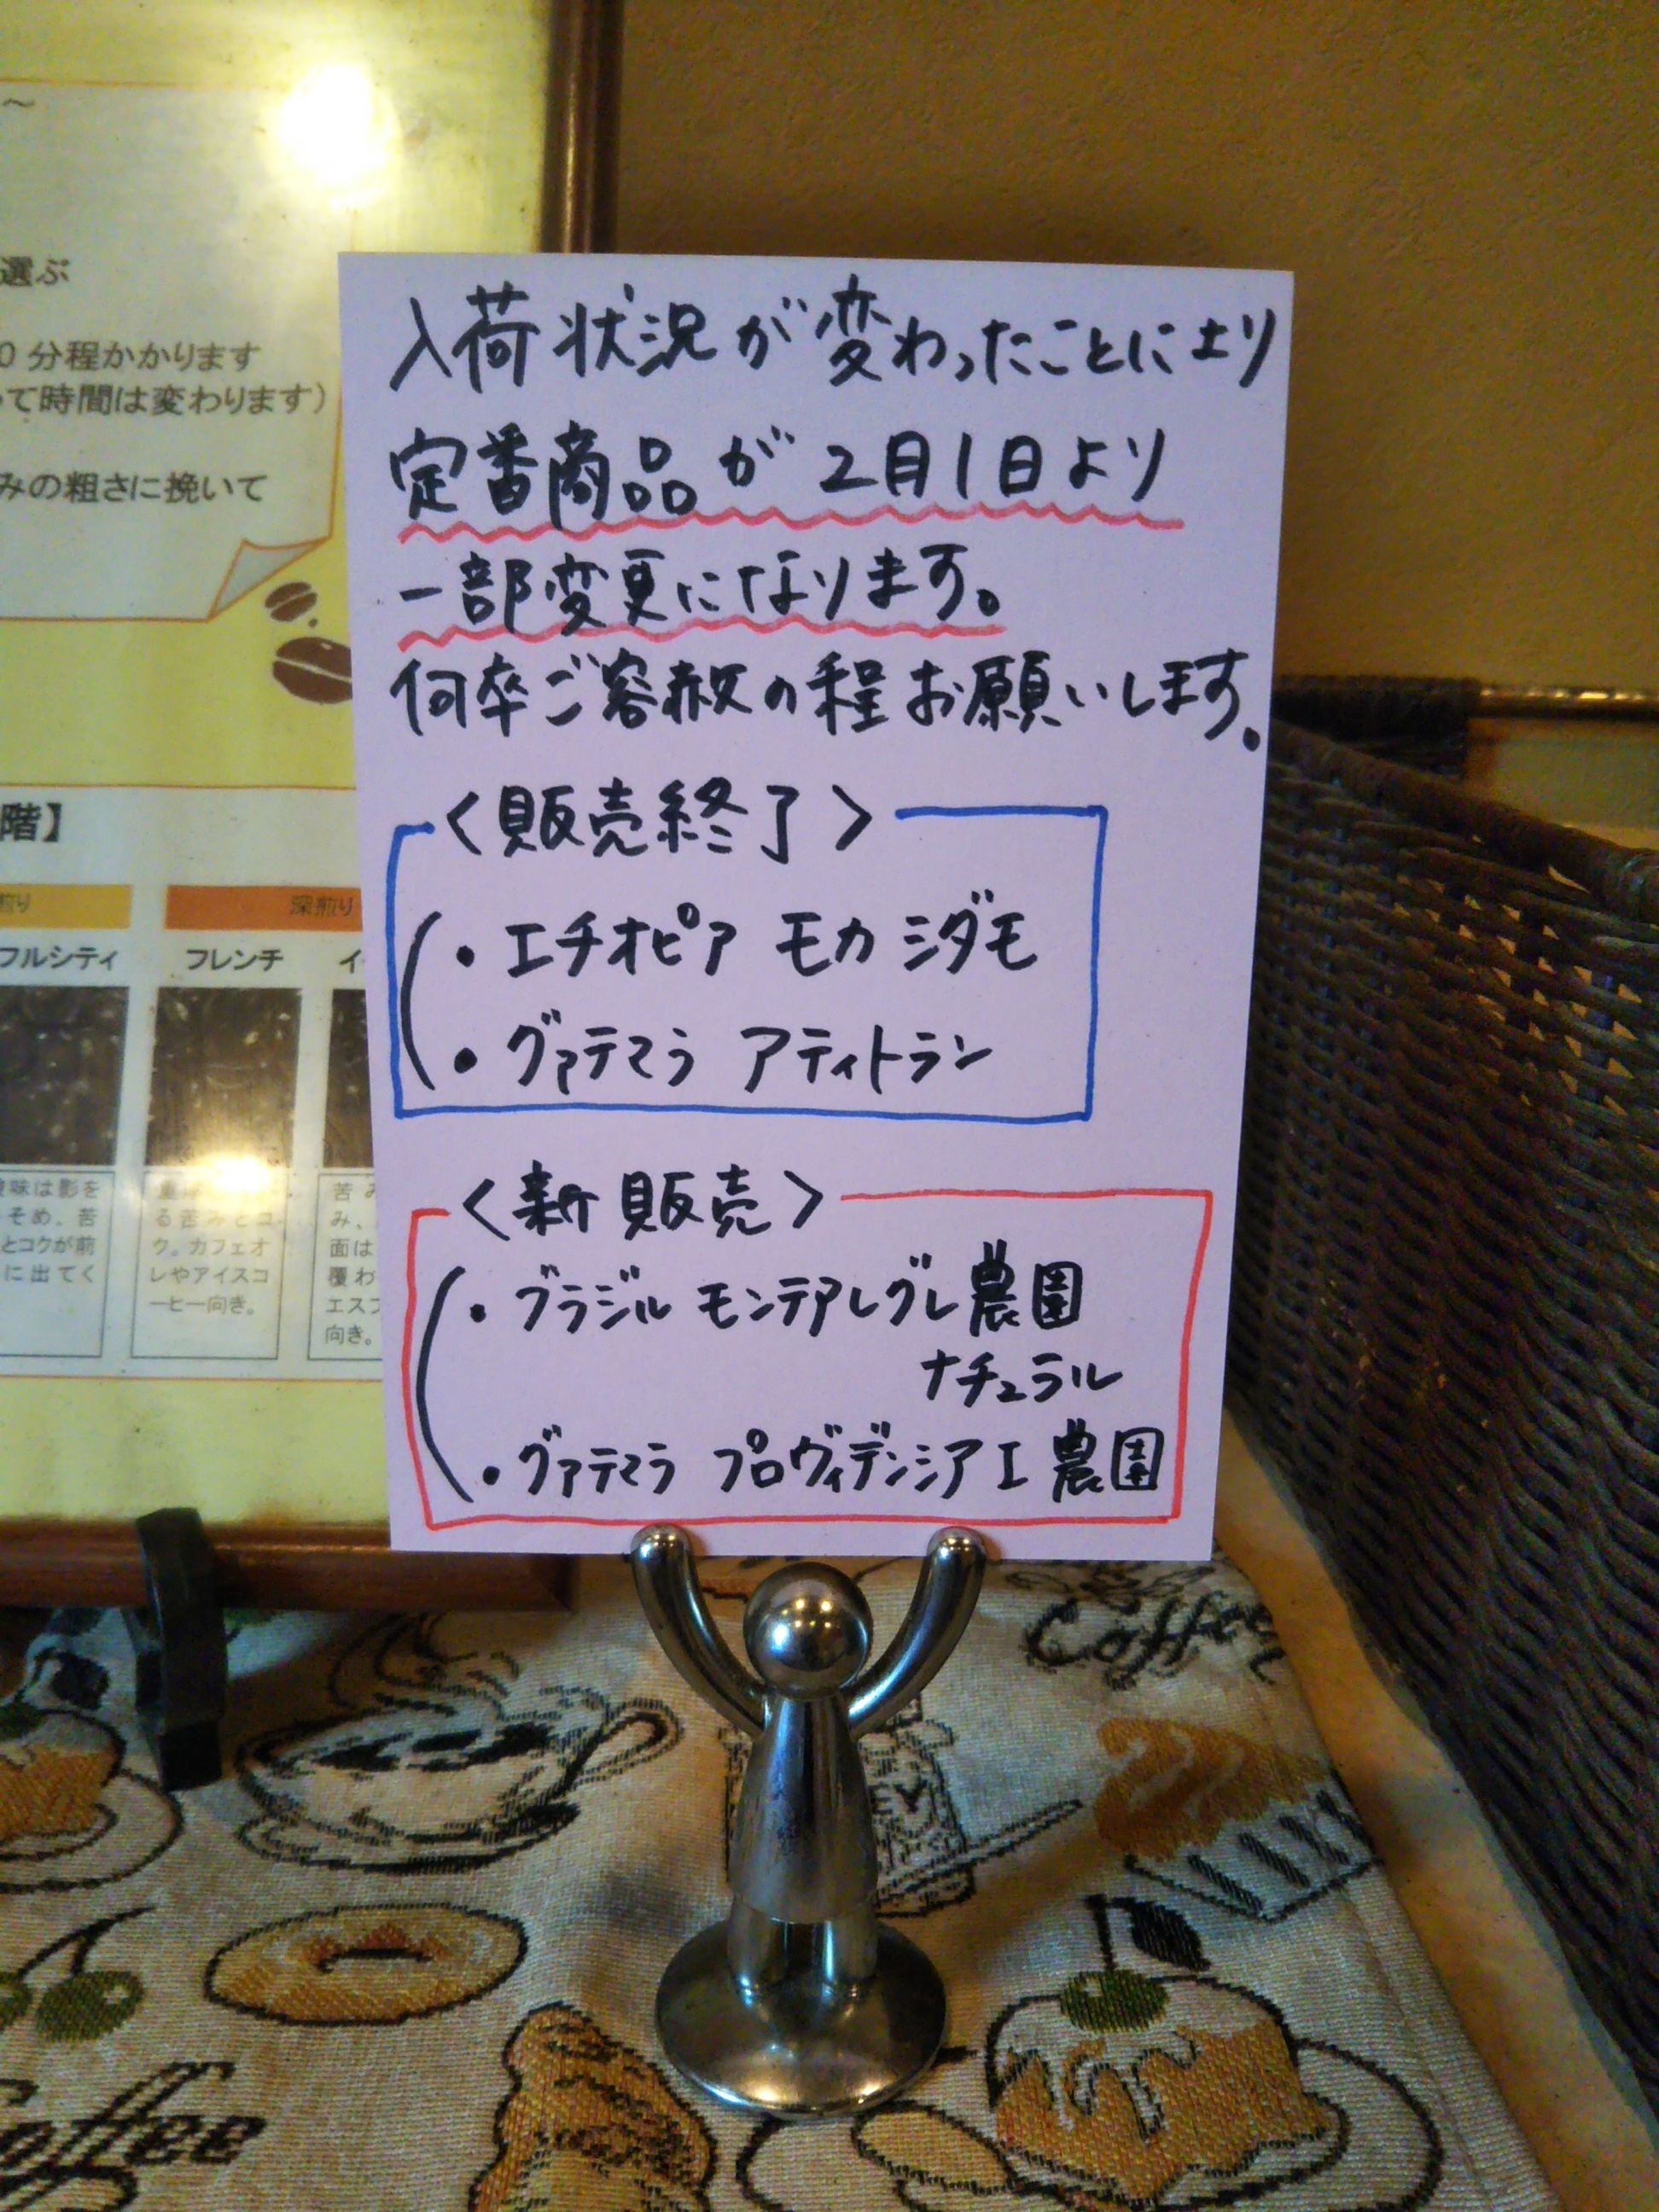 ～
選ぶ
0分程かかります
って時間は変わります）
みの粗さに挽いて
階】
煎り
深煎り
フルシティ
フレンチ
イ
酸味は影を
そめ、苦
とコクが前
に出てく
る苦みとコ
ク。カフェオ
レやアイスコ
ーヒー向き。
苦み
み、
面は
覆わ
エスプ
向き。
入荷状況が変わったことにより
定番商品が2月1日より
一部変更になります。
何卒ご容赦の程お願いします。
＜販売終了＞
・エチオピア モカ シダモ
・グァテマラ アティトラン
＜新販売＞
・ブラジル モンテアレグレ農園
ナチュラル
・グァテマラ プロヴィデンシアエ農園
Coffee
Coffee